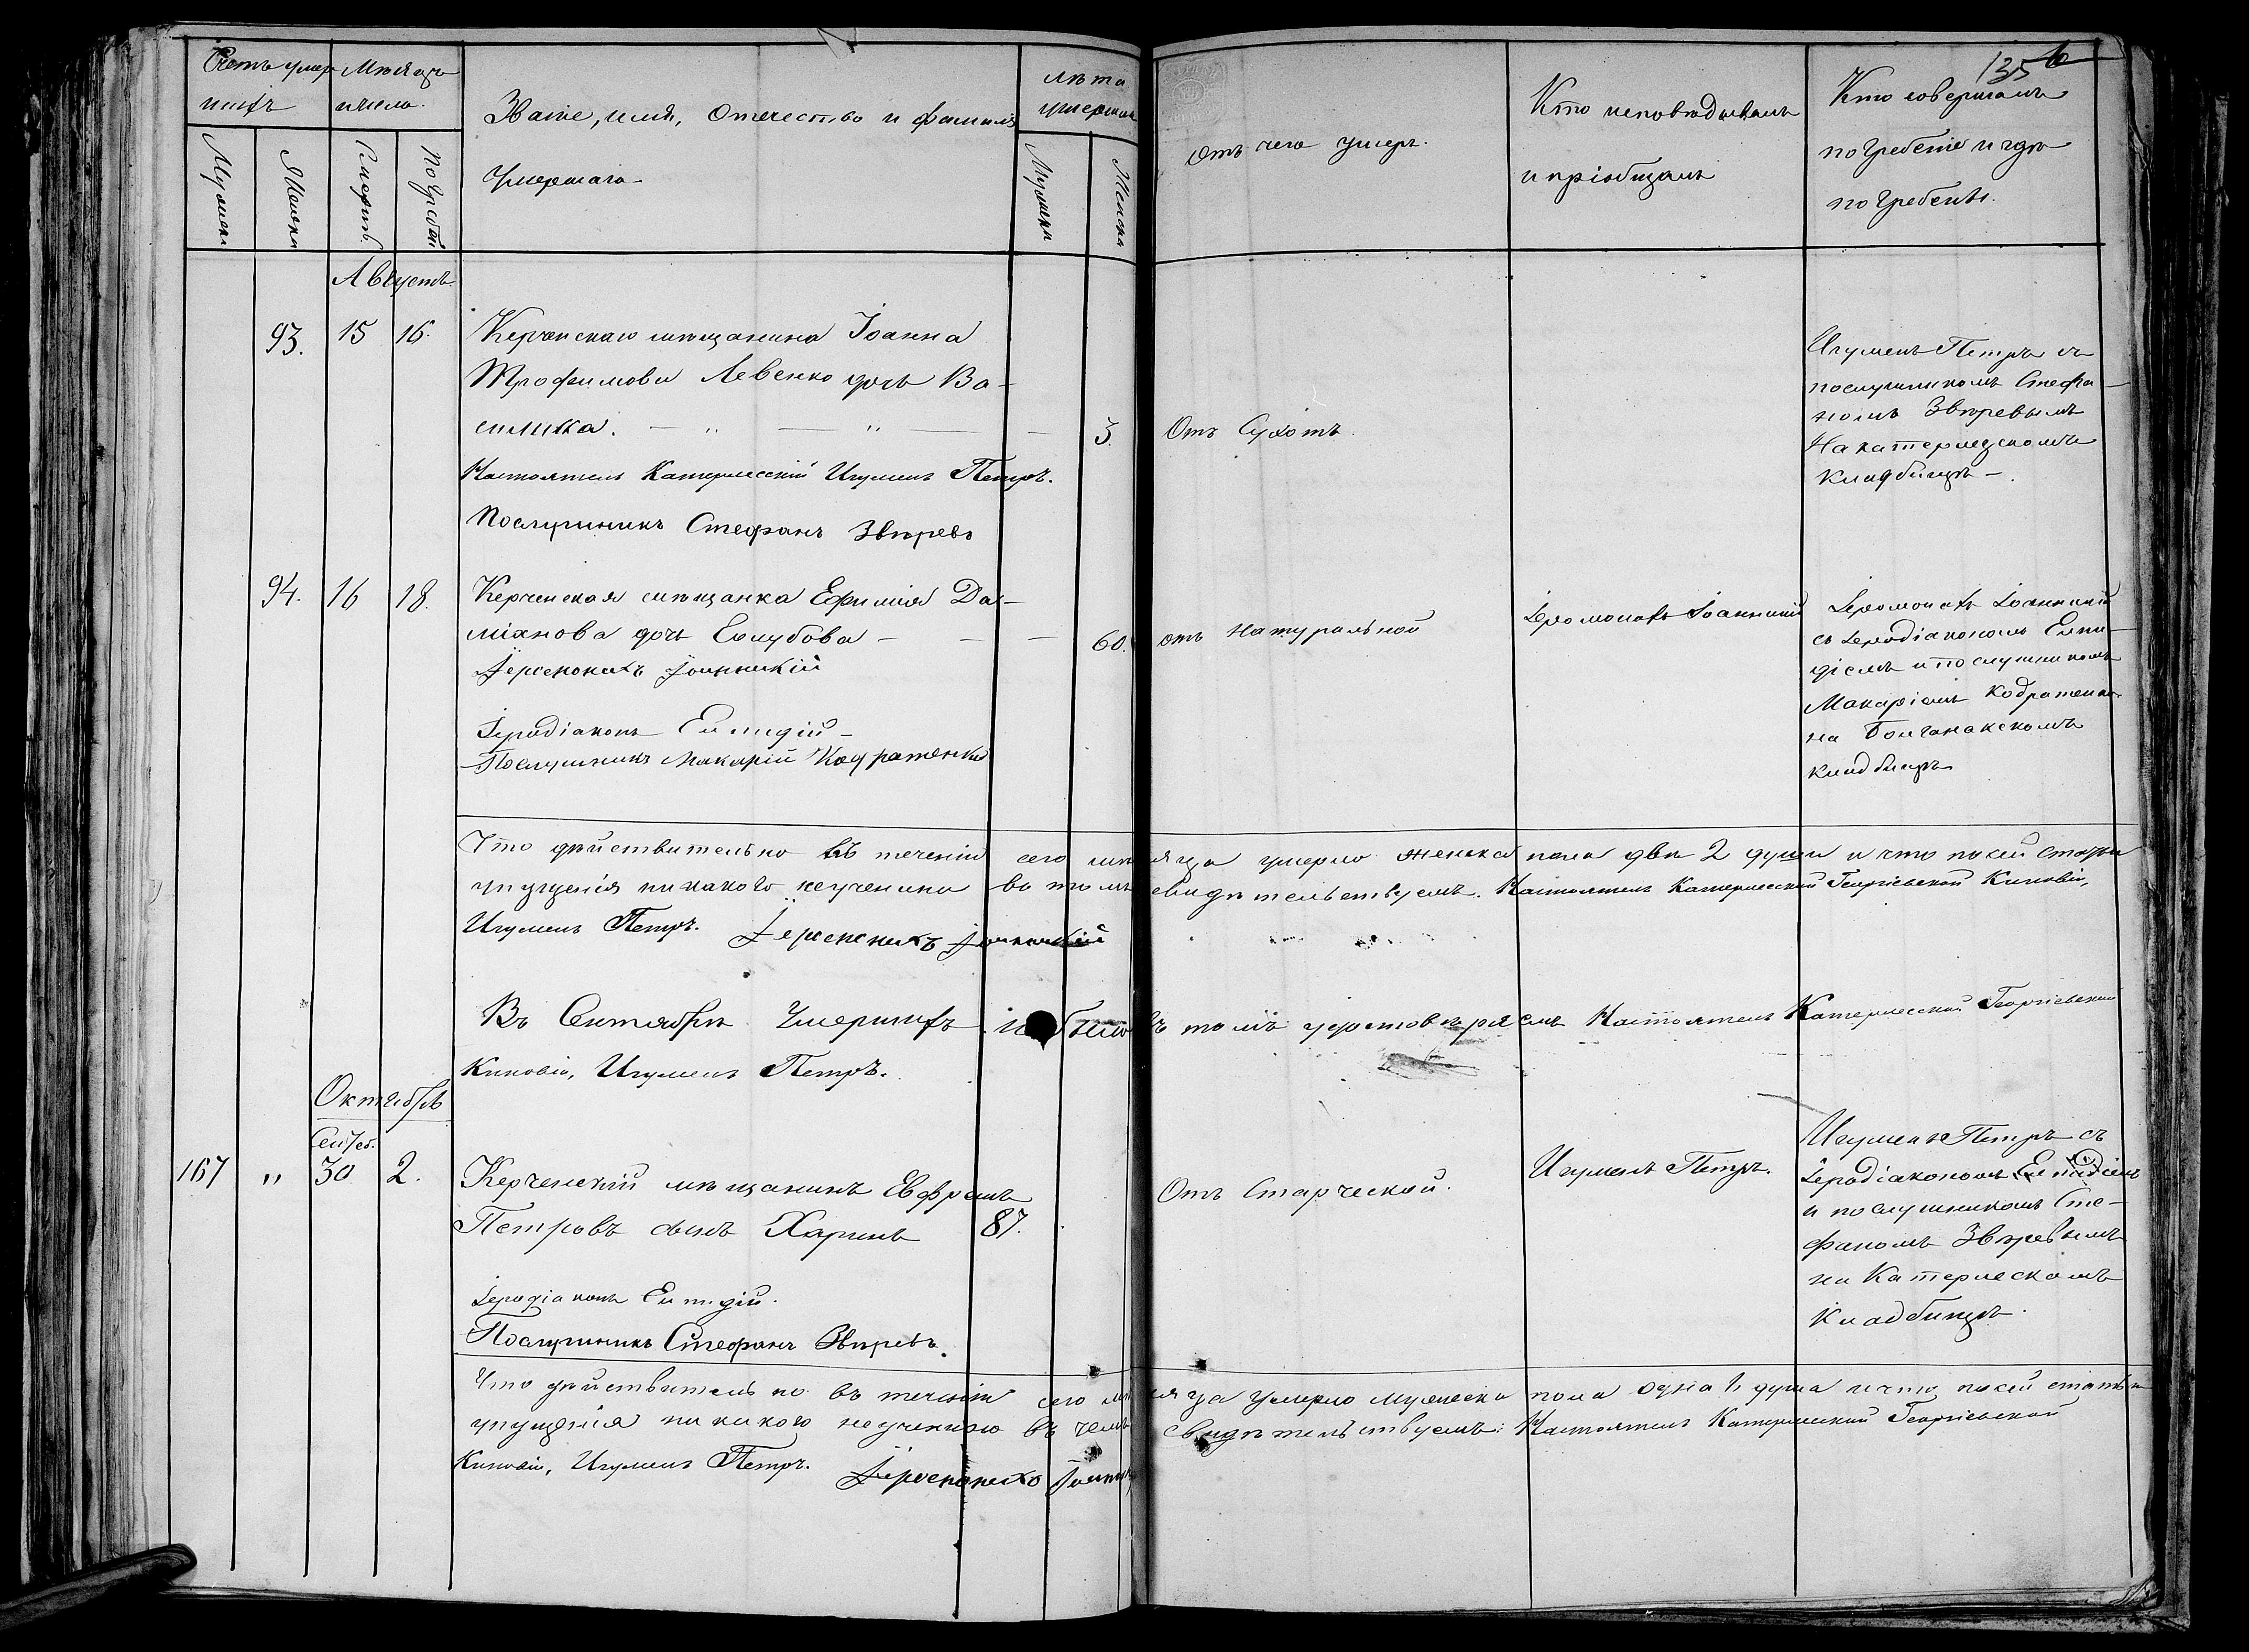 135
Счетъ умер
шихъ
Мѣсяцъ
число.
Званіе, имя, Отечество и фамилія
Умершаго
лѣта
умершихъ
Отъ чего умеръ.
Кто исповѣдывалъ
и пріобщалъ
Кто совершалъ
погребеніе и гдѣ
погребены.
Мужеска
Женска
Смерти.
Погребен.
Мужеска
Женска
Августъ.
93. 15 16. Керченскаго мѣщанина Іоанна
Трофимова Левенко дочь Ва-
силиса. 3. Отъ Сухотъ.
Игуменъ Петръ съ
послушникомъ Стефа-
номъ Звѣревымъ
На катерлезскомъ
кладбищѣ.
Настоятель Катерлесскій Игуменъ Петръ.
Послушникъ Стефанъ Звѣревъ
94. 16 18. Керченская мѣщанка Ефимія Да-
міанова дочь Голубова 60. отъ натуральной
Іеромонахъ Іоанникій
Іеромонахъ Іоанникій
съ Іеродіакономъ Елпи-
діемъ и послушникомъ
Макаріемъ Кодратенко
на Болганакскомъ
кладбищѣ
Іеромонахъ Іоанникій
Іеродіаконъ Елпидій
Послушникъ Макарій Кодратенко
Что дѣйствительно въ теченіи сего мѣсяца умерло женска пола двѣ 2 души и что по сей статьи
упущенія никакого неучинено во томъ свидѣтельствуемъ. Настоятель Катерлесской Георгіевской Киновіи,
Игуменъ Петръ. Іеромонахъ Іоанникій
Въ Сентябрѣ Умершихъ небыло въ томъ удостовѣряемъ Настоятель Катерлесской Георгіевской
Киновіи, Игуменъ Петръ.
Октябрь
Сентяб.
167 " 30 2. Керченскій мѣщанинъ Евфремъ
Петровъ сынъ Харинъ 87. Отъ Старческой.
Игуменъ Петръ.
Игуменъ Петръ съ
Іеродіакономъ Елпидіемъ
и послушникомъ Сте-
фаномъ Звѣревымъ
на Катерлескомъ
Кладбищѣ.
Іеродіаконъ Елпидій.
Послушникъ Стефанъ Звѣревъ.
Что дѣйствительно въ теченіи сего мѣсяца умерло мужеска пола одна 1 душа и что по сей статьи
упущенія никакого неучинено въ чемъ свидѣтельствуемъ: Настоятель Катерлесской Георгіевской
Киновіи, Игуменъ Петръ. Іеромонахъ